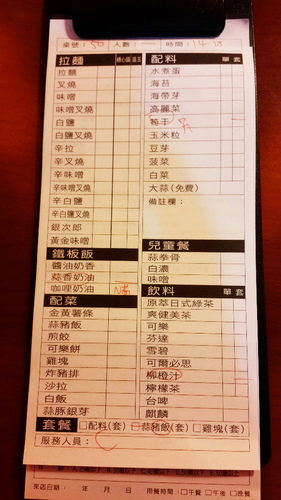 桌號：50 人數：一 時間：14:
拉麵
拉麵
叉燒
味噌
味噌叉燒
白鹽
白鹽叉燒
辛拉
辛叉燒
辛味噌
辛味噌叉燒
辛白鹽
辛白鹽叉燒
銀次郎
黃金味噌
鐵板飯
醬油奶香
蒜香奶油
咖哩奶油
配菜
金黃薯條
蒜豬飯
煎餃
可樂餅
雞塊
炸豬排
沙拉
白飯
蒜豚銀芽
配料 單 套
水煮蛋
海苔
海帶芽
高麗菜
筍干
玉米粒
豆芽
菠菜
白菜
大蒜(免費)
備註欄：
兒童餐
蒜拳骨
白濃
味噌
飲料 單 套
原萃日式綠茶
爽健美茶
可樂
芬達
雪碧
可爾必思
柳橙汁
檸檬茶
台啤
麒麟
套餐 □配料(套) □蒜豬飯(套) □雞塊(套)
服務人員：
來店日期： 年 月 日 用餐時間：□午餐 □午後 □晚餐